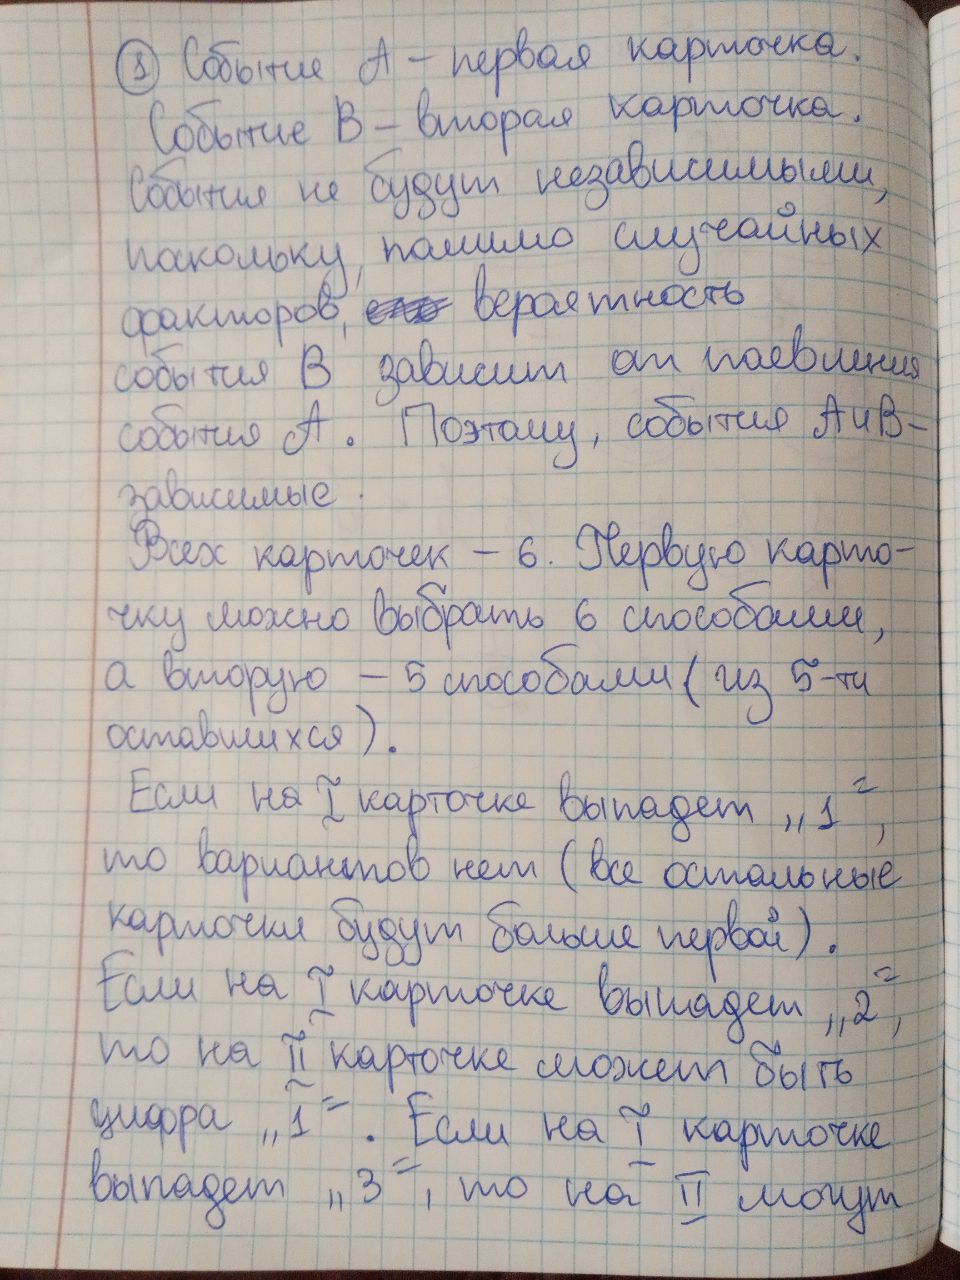 ① Событие А – первая карточка.
Событие В – вторая карточка.
События не будут независимыми,
поскольку, помимо случайных
факторов, вероятность
события В зависит от появления
события А. Поэтому, события А и В –
зависимые.
Всех карточек – 6. Первую карто-
чку можно выбрать 6 способами,
а вторую – 5 способами (из 5-ти
оставшихся).
Если на I карточке выпадет „1“,
то вариантов нет (все остальные
карточки будут больше первой).
Если на I карточке выпадет „2“,
то на II карточке может быть
цифра „1“. Если на I карточке
выпадет „3“, то на II могут